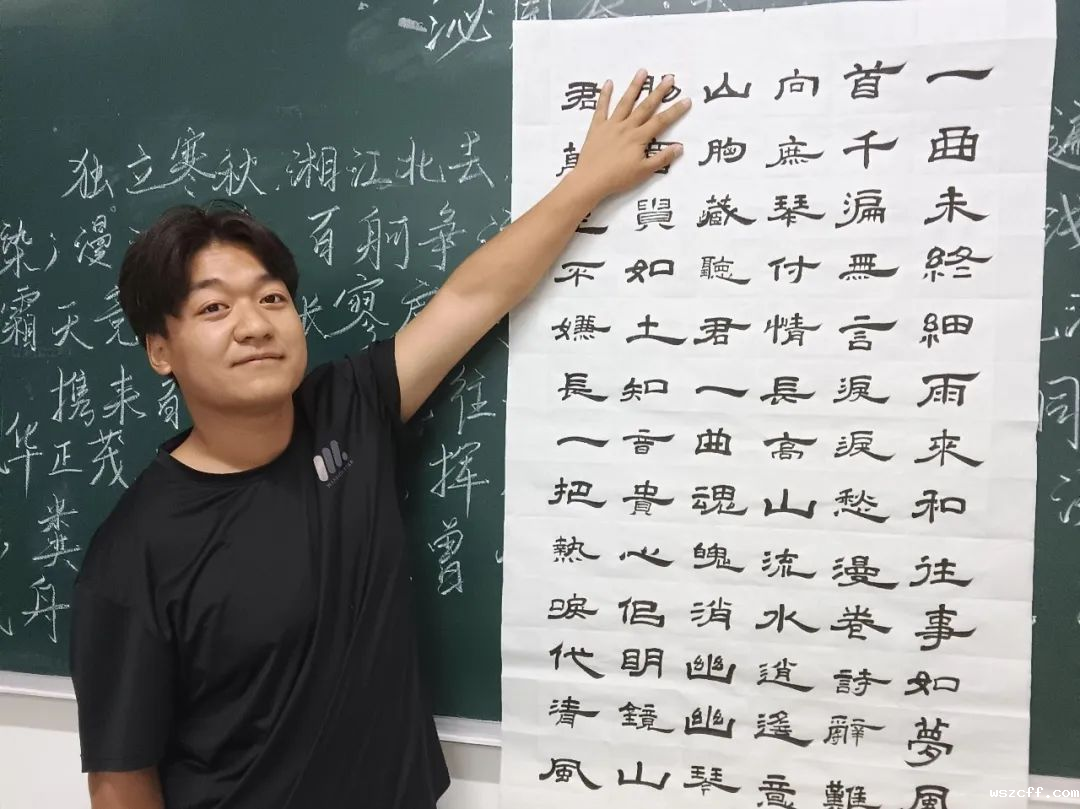 泌
独立寒秋,湘江北去,
染;漫 百舸争
霜天竞 寥
携来百 往
华正茂 挥
粪 曾
舟
一曲未終細雨來和往事如夢風
首千無言淚淚愁漫卷詩辭難
向琴付情長高山流水逍遙意
山胸藏聽君一曲魂魄消幽幽琴
如土知音貴心侣明鏡山
君不嫌長一把熱淚代清風
遍
同
wszcff.com